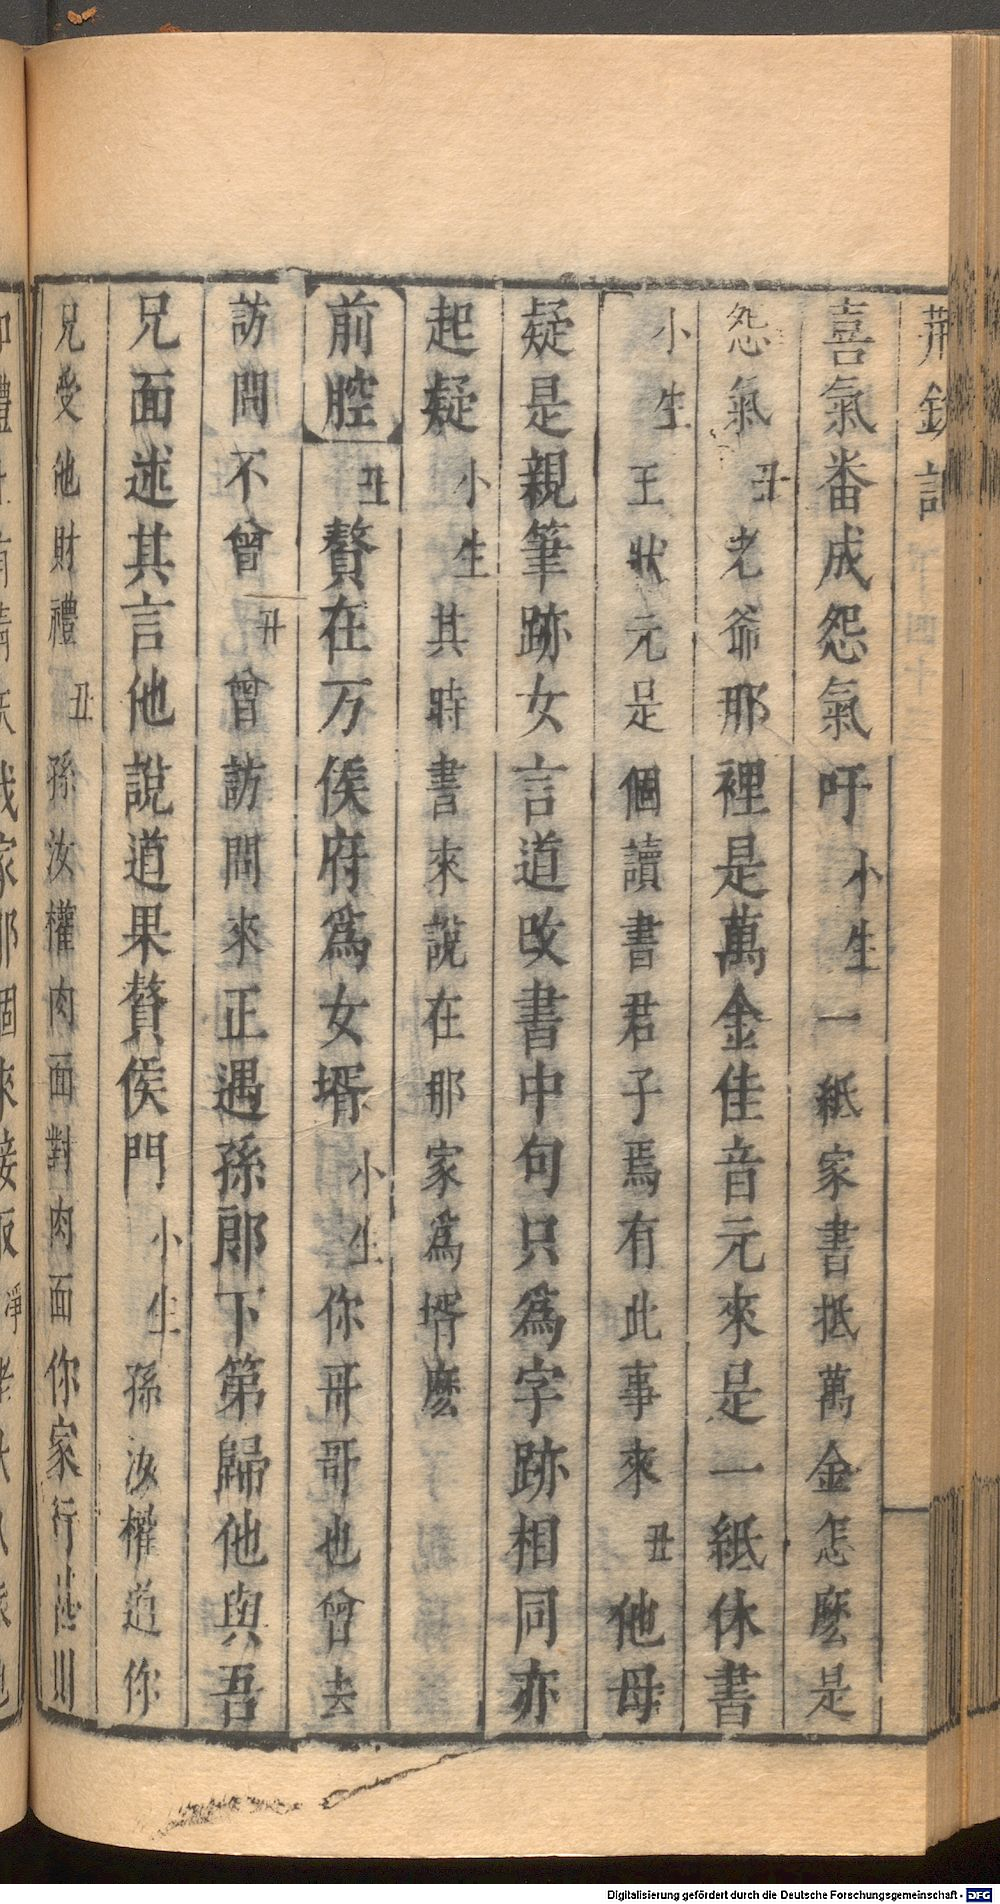 荊釵記
喜氣番成怨氣吁小生一紙家書抵萬金怎麽是
怨氣丑老爺那裡是萬金佳音元來是一紙休書
小生王狀元是個讀書君子焉有此事來丑他母
疑是親筆跡女言道改書中句只爲字跡相同亦
起疑小生其時書來說在那家爲壻麽
前腔丑贅在万俟府爲女壻小生你哥哥也曾去
訪問不曾丑曾訪問來正遇孫郎下第歸他與吾
兄面述其言他說道果贅侯門小生孫汝權道你
兄受他財禮丑孫汝權肉面對肉面你家行
Digitalisierung gefördert durch die Deutsche Forschungsgemeinschaft - DFG